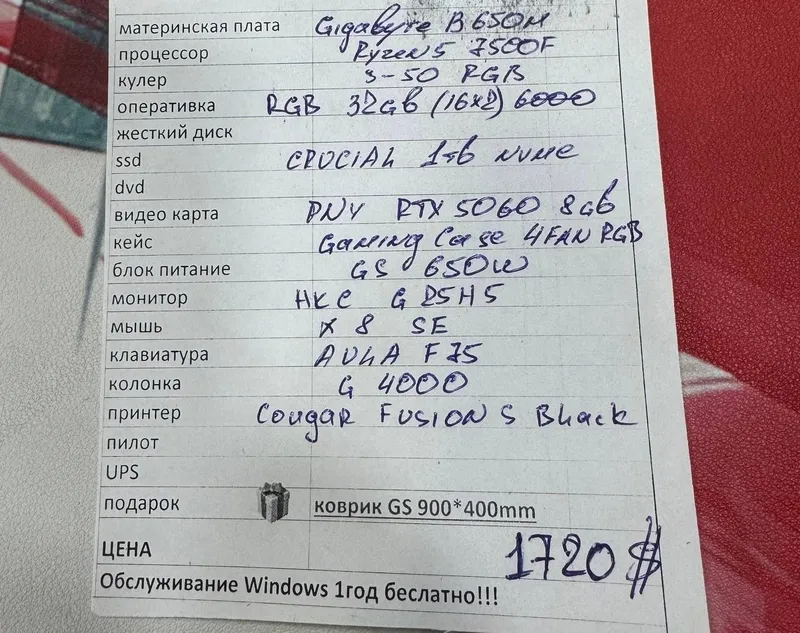 материнская плата Gigabyte B 650M
процессор Ryzen 5 7500F
кулер S-50 RGB
оперативка RGB 32Gb (16x2) 6000
жесткий диск
ssd CRUCIAL 1тb NVMe
dvd
видео карта PNY RTX 5060 8Gb
кейс Gaming Case 4FAN RGB
блок питание GS 650W
монитор HKC G 25H5
мышь X 8 SE
клавиатура AULA F75
колонка G 4000
принтер Cougar FUSION S Black
пилот
UPS
подарок коврик GS 900*400mm
ЦЕНА 1720 $
Обслуживание Windows 1год беслатно!!!